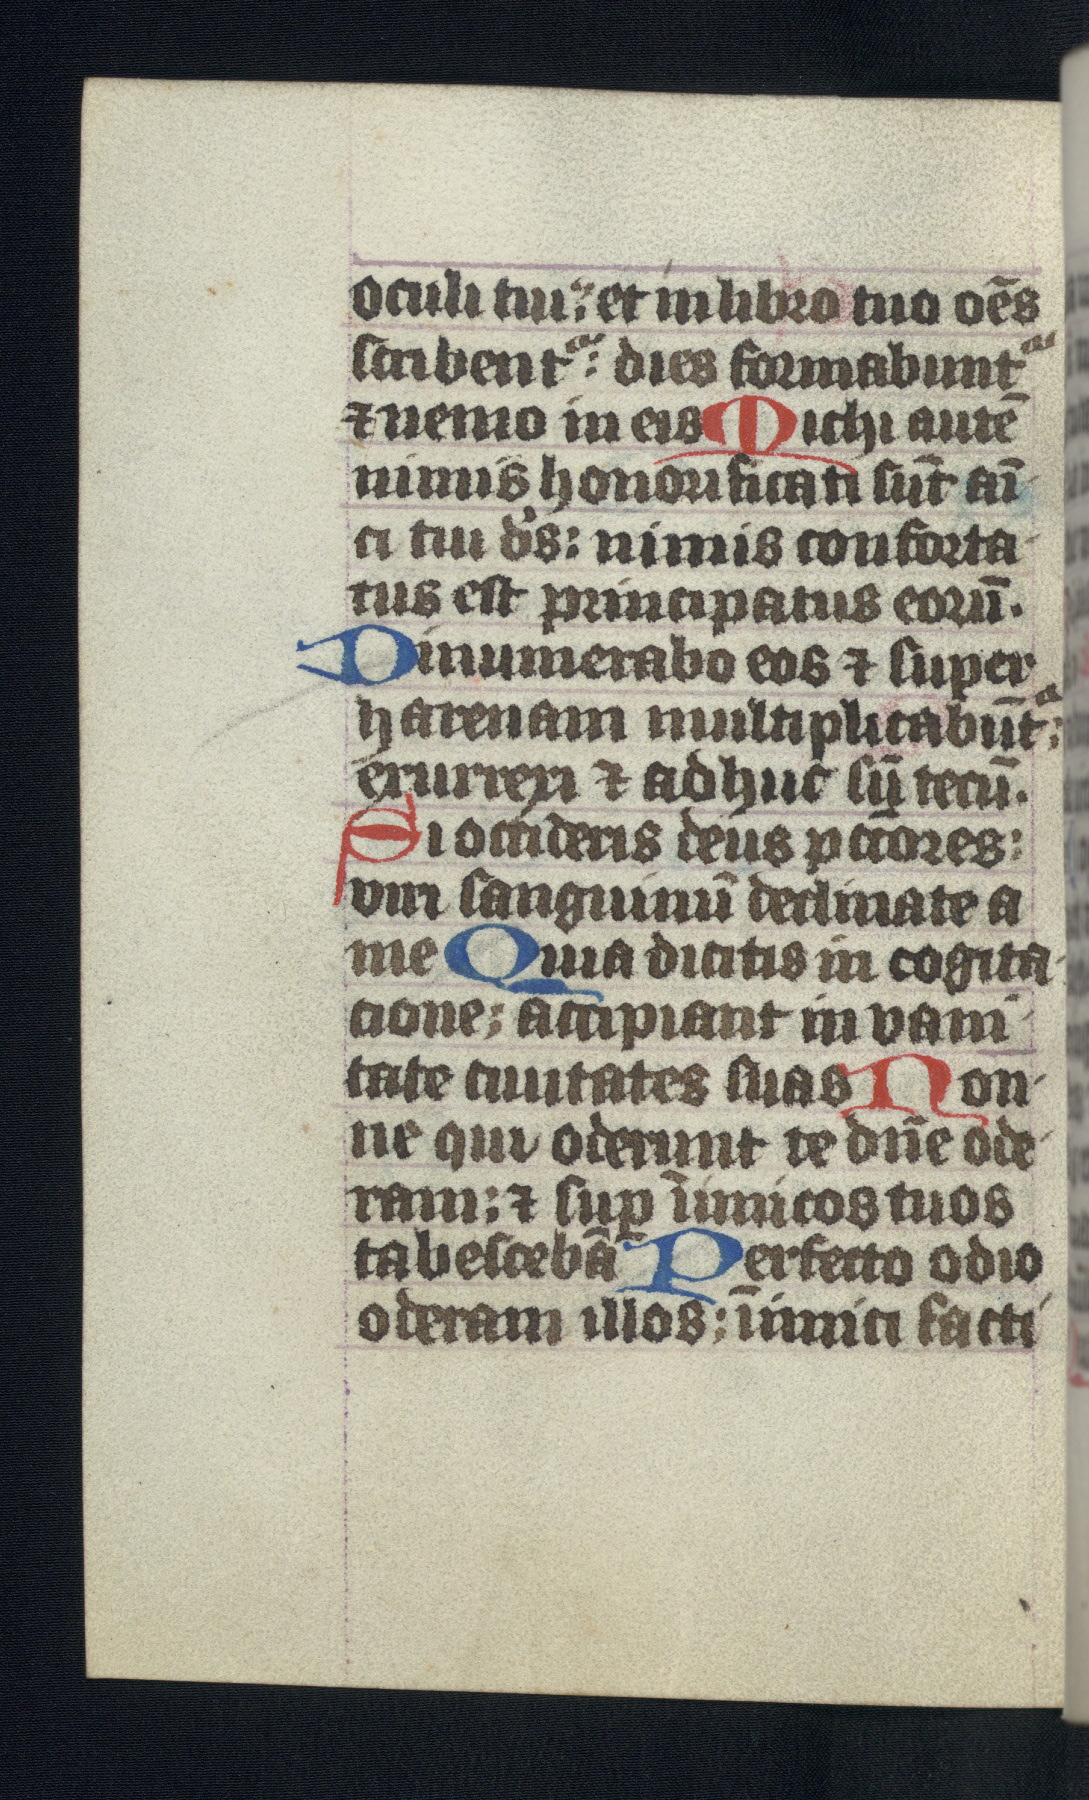 oculi tui: et in libro tuo oēs
scribentᵘʳ: dies formabuntᵘʳ
⁊ nemo in eis Michi autē
nimis honorificati sūt ami
ci tui ds̄: nimis conforta
tus est principatus eorū.
Dinumerabo eos ⁊ super
harenam multiplicabūtᵘʳ:
exurrexi ⁊ adhuc sū tecū.
Si occideris deus pc̄cores:
viri sanguinū declinate a
me Quia dicitis in cogita
cione: accipiant in vani
tate ciuitates suas Non
ne qui oderunt te dn̄e ode
ram: ⁊ sup īimicos tuos
tabescebā Perfecto odio
oderam illos: īimici facti